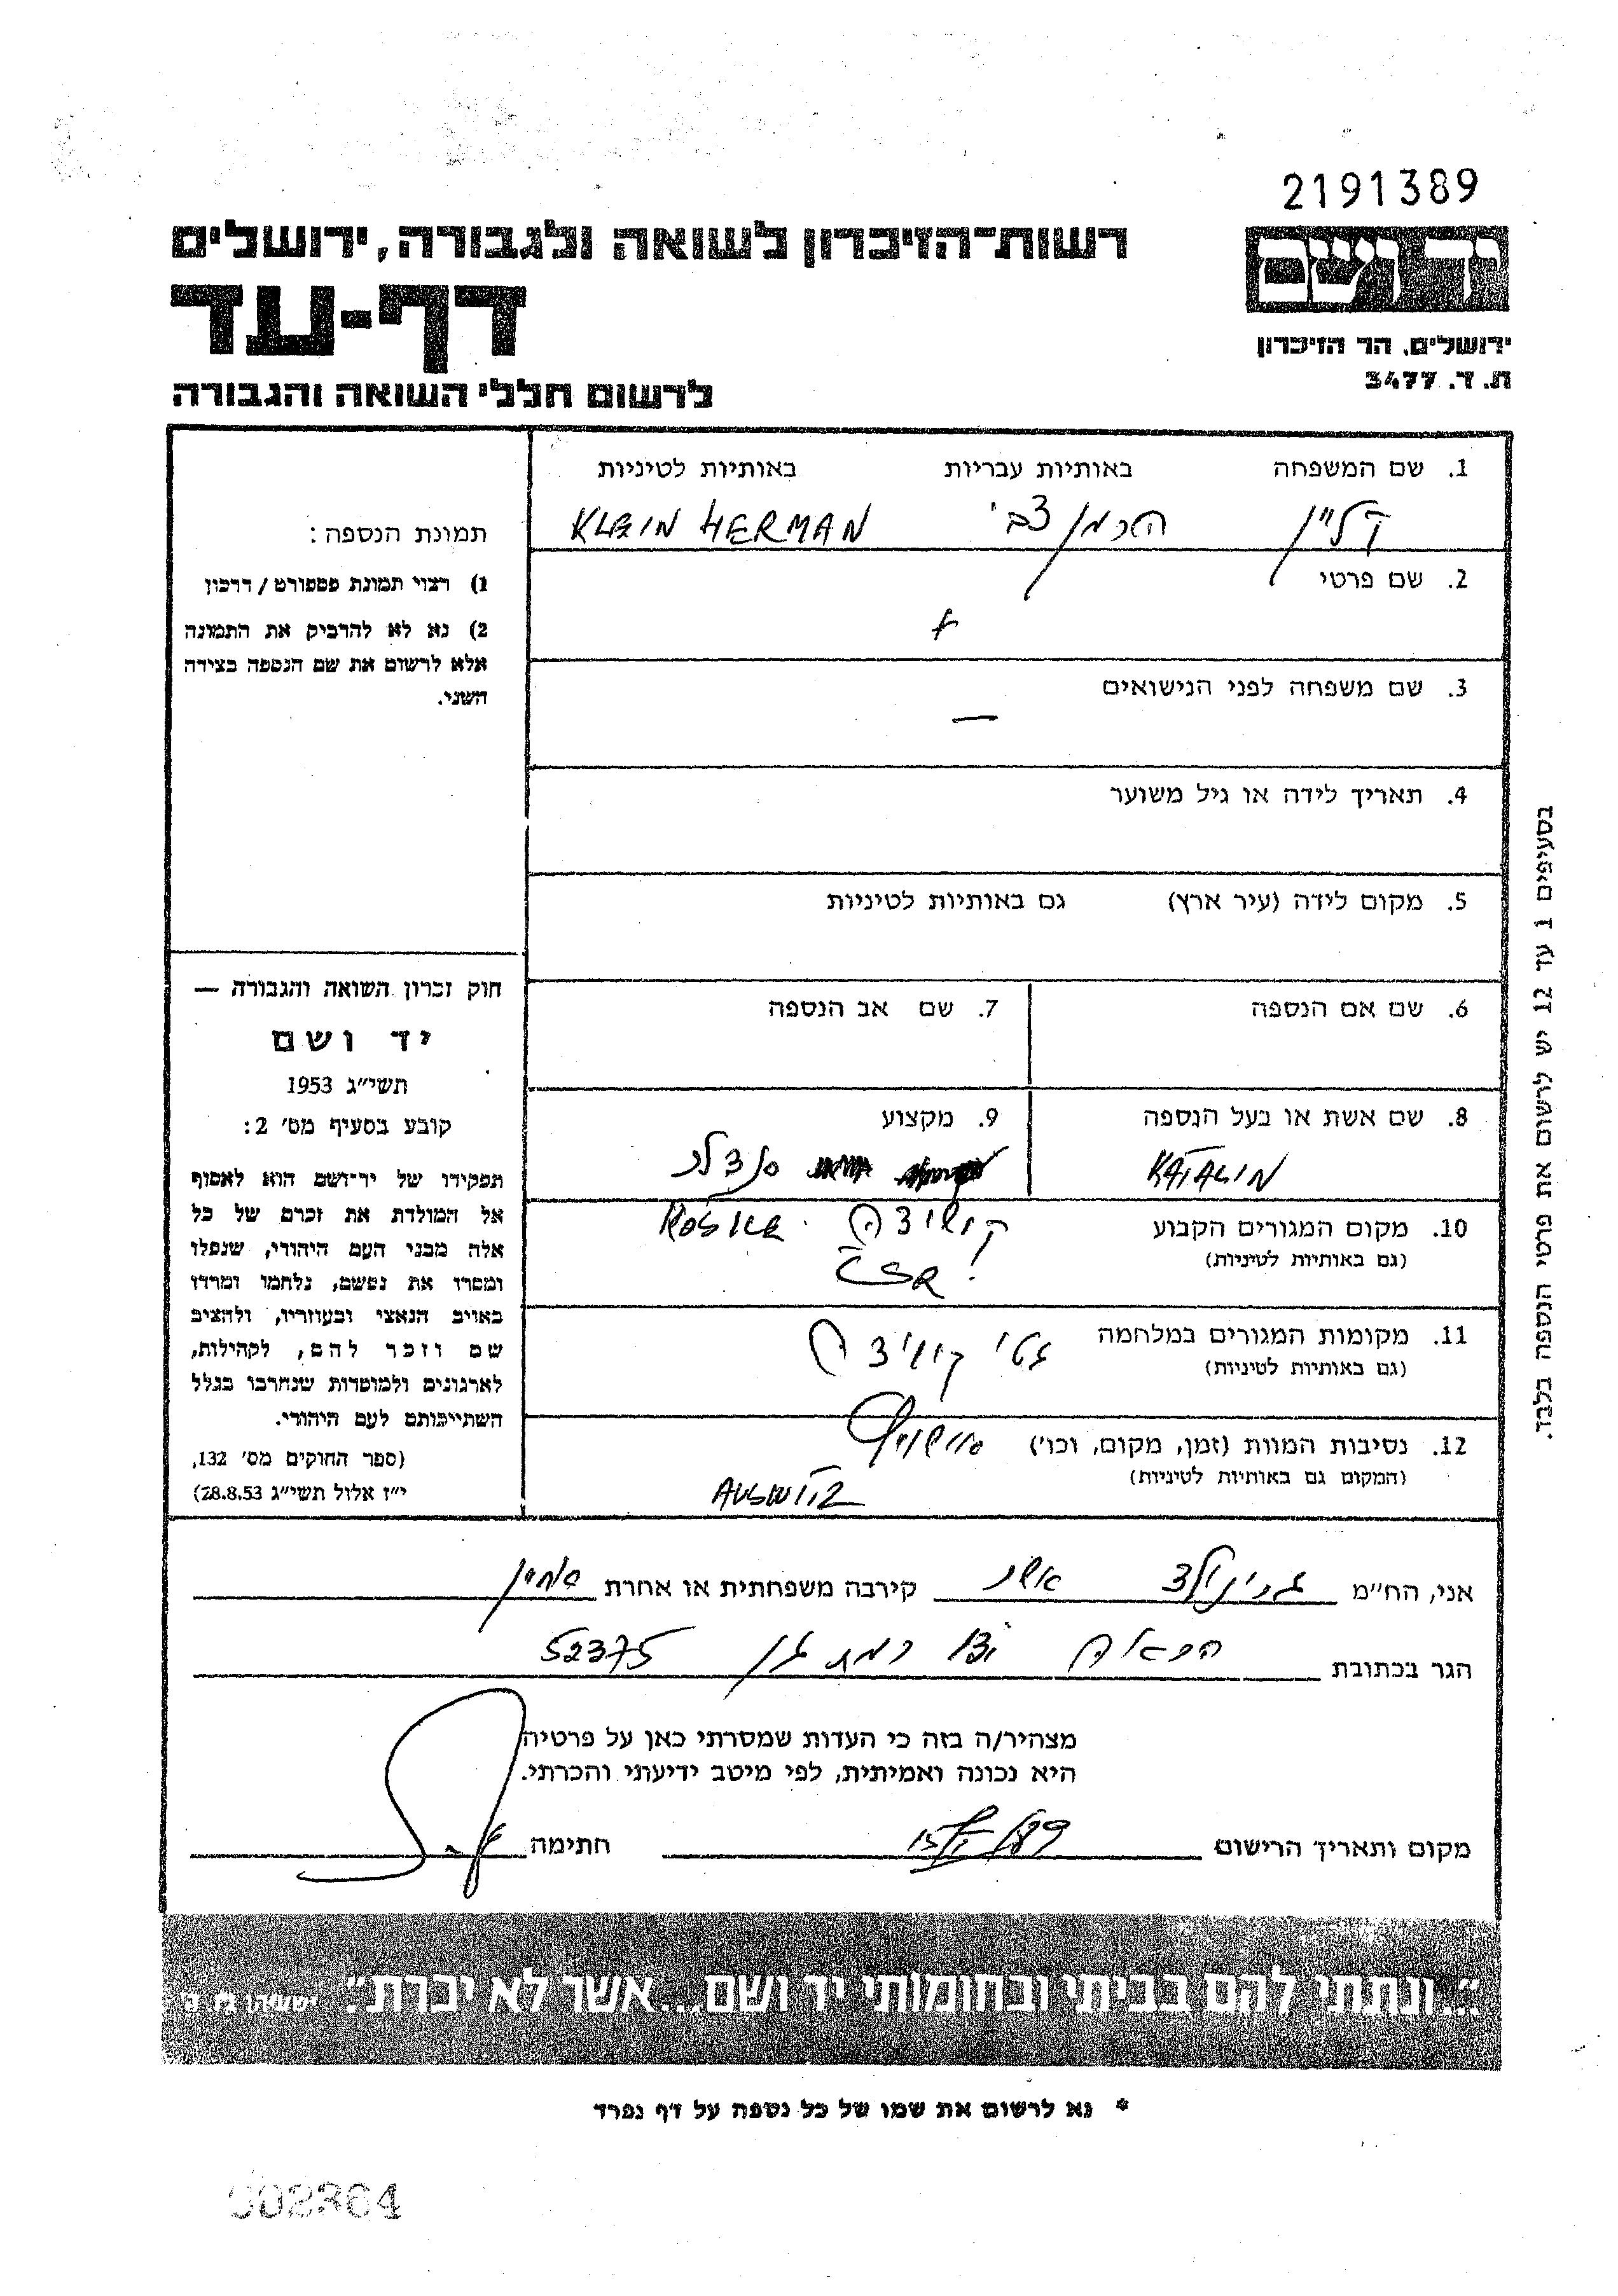 2191389
רשות-הזיכרון לשואה ולגבורה, ירושלים
יד ושם
דף-עד
ירושלים, הר הזיכרון
ת. ד. 3477
לרשום חללי השואה והגבורה
1. שם המשפחה באותיות עבריות באותיות לטיניות
קליין הרמן צבי KLEIN HERMAN
2. שם פרטי
3. שם משפחה לפני הנישואים
—
4. תאריך לידה או גיל משוער
5. מקום לידה (עיר ארץ) גם באותיות לטיניות
6. שם אם הנספה
7. שם אב הנספה
8. שם אשת או בעל הנספה
KATALIN
9. מקצוע
סנדלר
10. מקום המגורים הקבוע
(גם באותיות לטיניות)
ČSR
11. מקומות המגורים במלחמה
(גם באותיות לטיניות)
גטו
12. נסיבות המוות (זמן, מקום, וכו')
(המקום גם באותיות לטיניות)
AUSWITZ
תמונת הנספה:
1) רצוי תמונת פספורט / דרכון
2) נא לא להדביק את התמונה
אלא לרשום את שם הנספה בצידה
השני.
חוק זכרון השואה והגבורה —
יד ושם
תשי"ג 1953
קובע בסעיף מס' 2:
תפקידו של יד-ושם הוא לאסוף
אל המולדת את זכרם של כל
אלה מבני העם היהודי, שנפלו
ומסרו את נפשם, נלחמו ומרדו
באויב הנאצי ובעוזריו, ולהציב
שם וזכר להם, לקהילות,
לארגונים ולמוסדות שנחרבו בגלל
השתייכותם לעם היהודי.
(ספר החוקים מס' 132,
י"ז אלול תשי"ג 28.8.53)
בסעיפים 1 עד 12 יש לרשום את פרטי הנספה בלבד.
אני, הח"מ גרינוולד אשר קירבה משפחתית או אחרת אחיין
הגר בכתובת הרא"ה רמת גן 52375
מצהיר/ה בזה כי העדות שמסרתי כאן על פרטיה
היא נכונה ואמיתית, לפי מיטב ידיעתי והכרתי.
מקום ותאריך הרישום חתימה
"...ונתתי להם בביתי ובחומותי יד ושם...אשר לא יכרת". ישעיהו נו ה
* נא לרשום את שמו של כל נספה על דף נפרד
002364